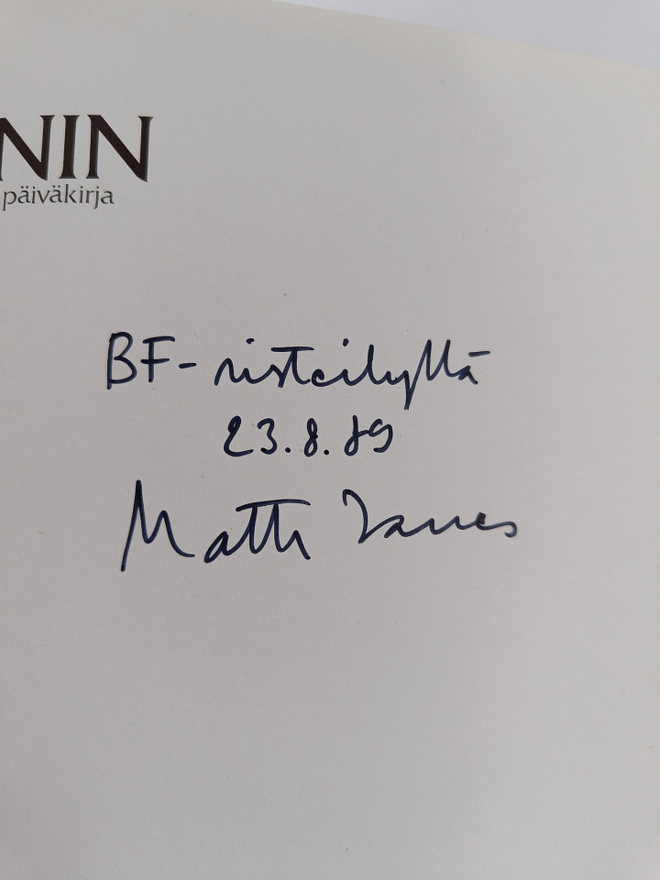 NIN
päiväkirja
BF-risteilyltä
23.8.89
Matti